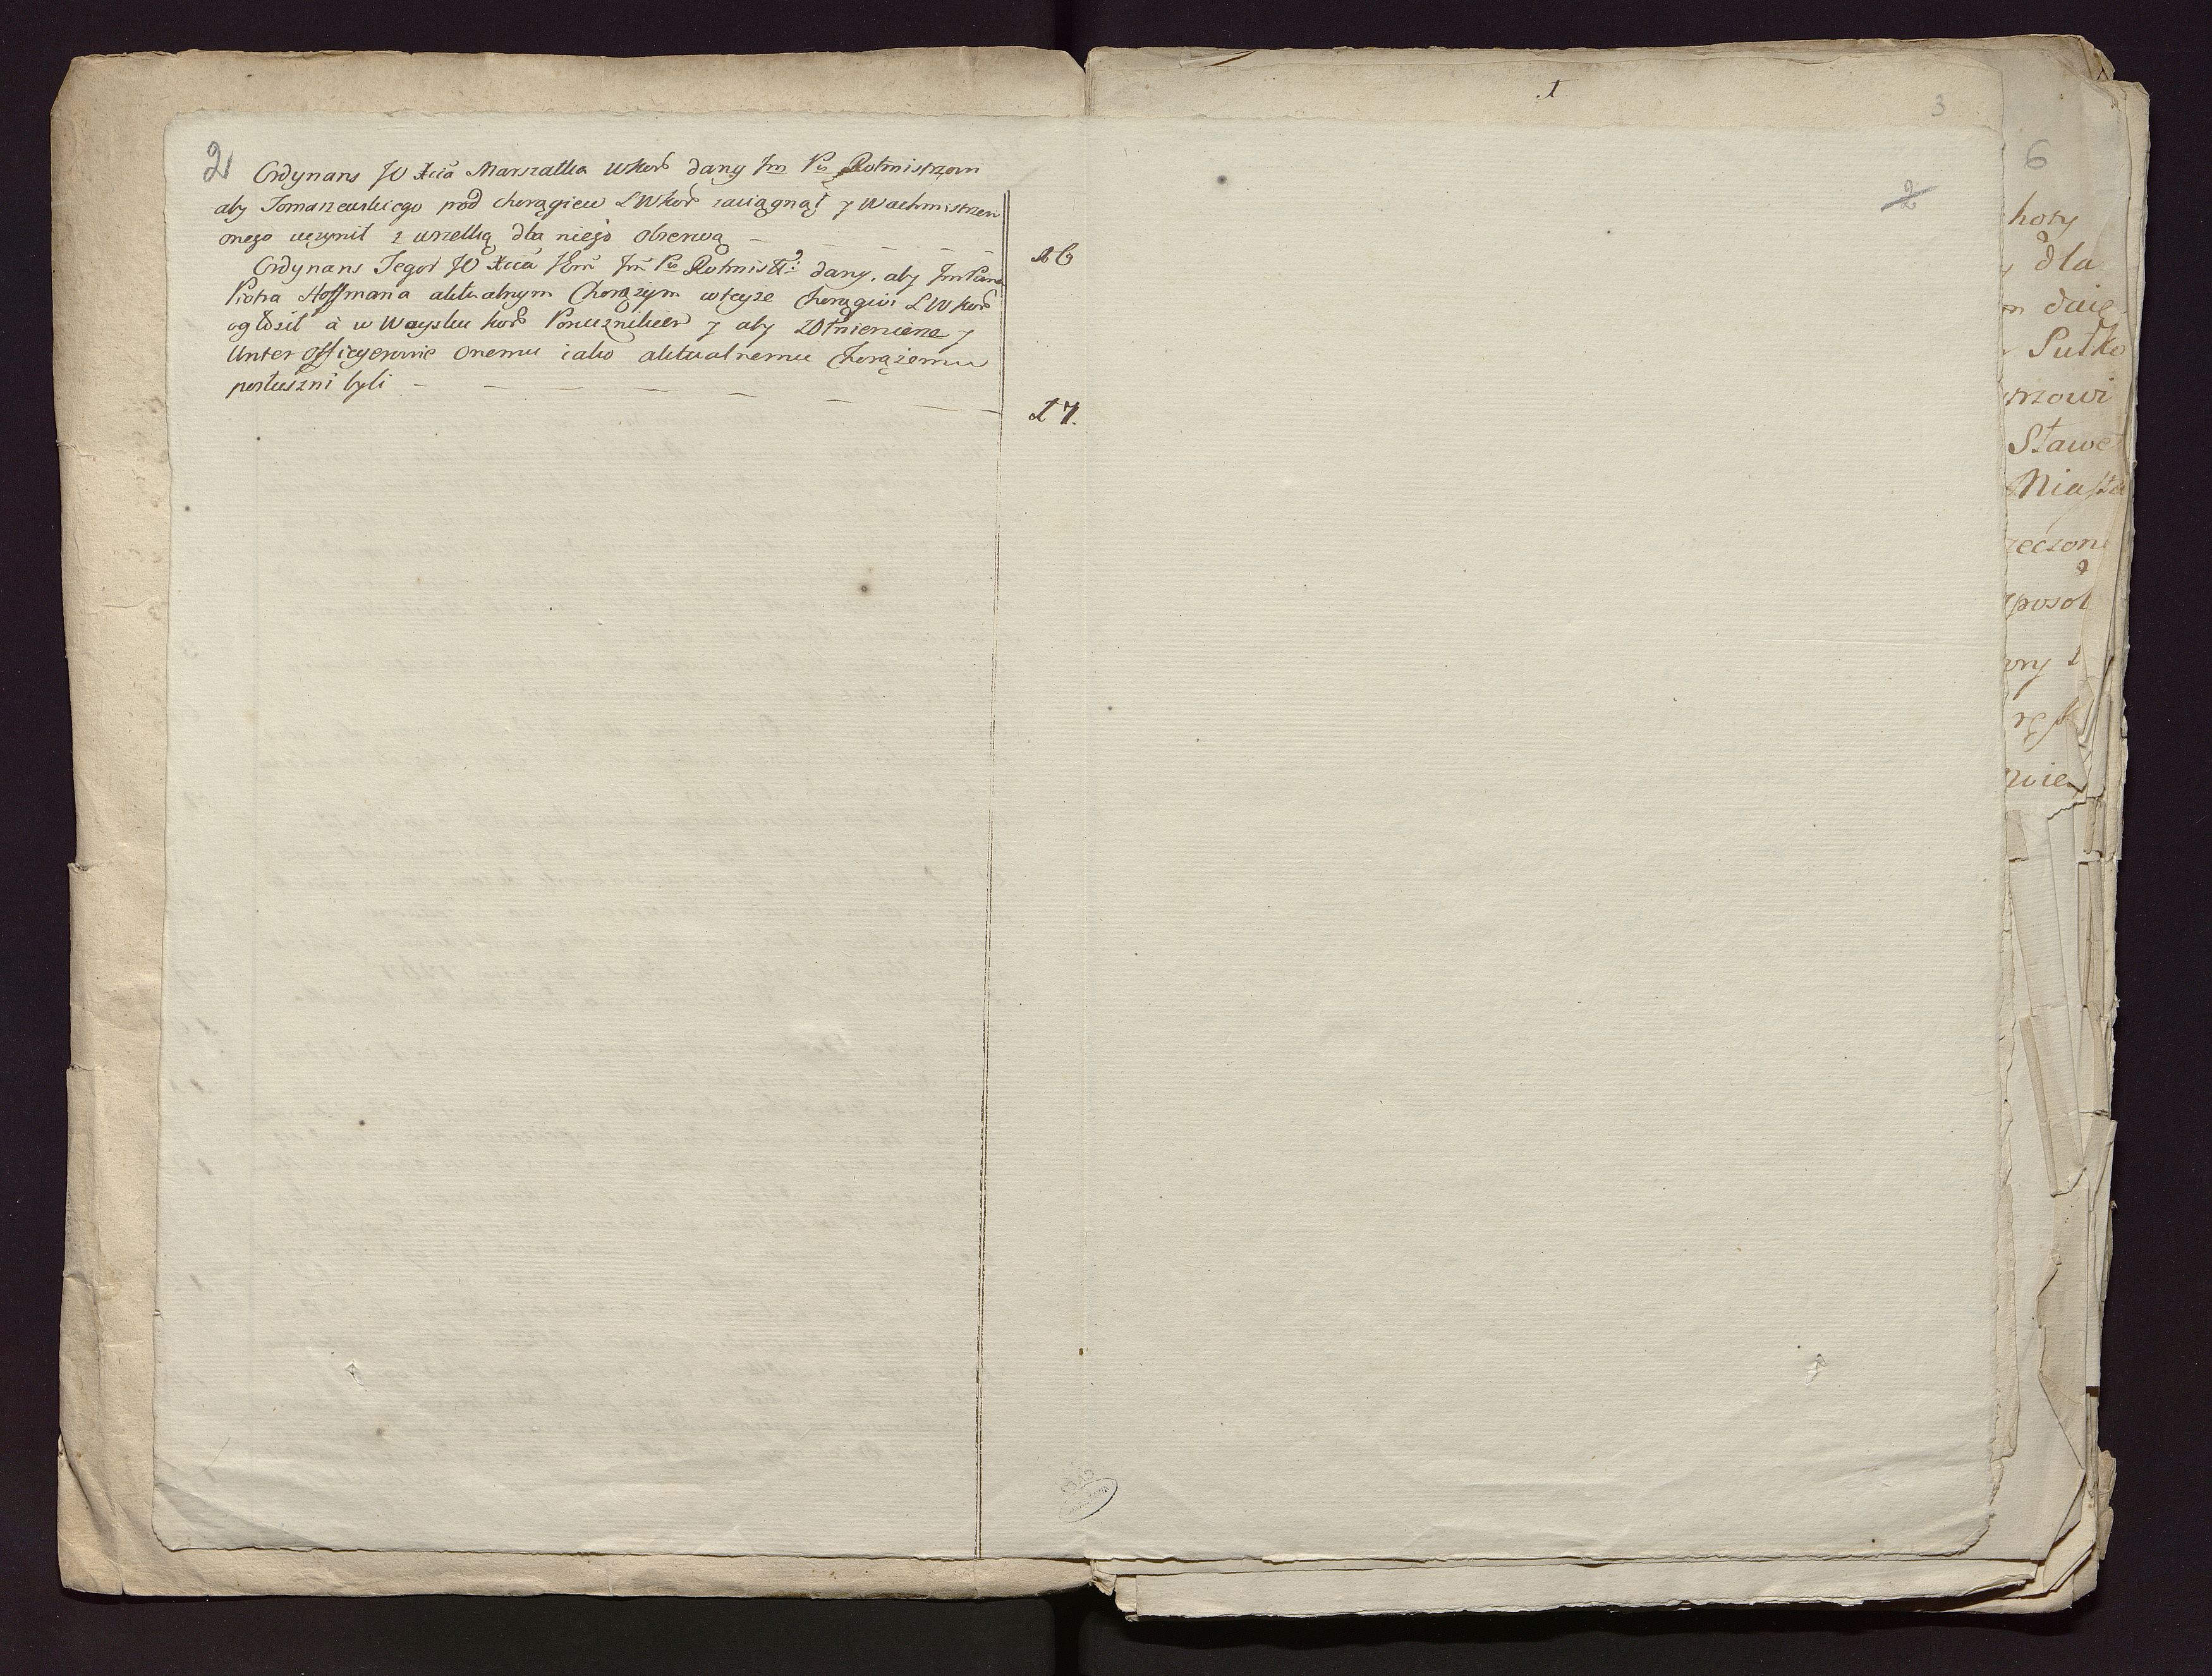 2
Ordynans JO Xcia Marszałka WKor dany Jm Pu Rotmistrzowi
aby Tomaszewskiego pod chorągiew LWKor zaciągnął y Wachmistrzem
onego uczynił z wszelką dla niego obserwą
16
Ordynans Tegoż JO Xcia Jm Pu Rotmistr: dany, aby Jm Pana
Piotra Hoffmana aktualnym Chorążym wteyże Chorągwi LWKor
ogłosił à w Woysku Kor Porucznikiem y aby żołnierze y
Unter Officyerowie onemu iako aktualnemu Chorążemu
posłuszni byli
17.
1
3
2
6
hoty
dla
daię
Pułko
trzowi
Stawe
Miasta
zeczon
sposob